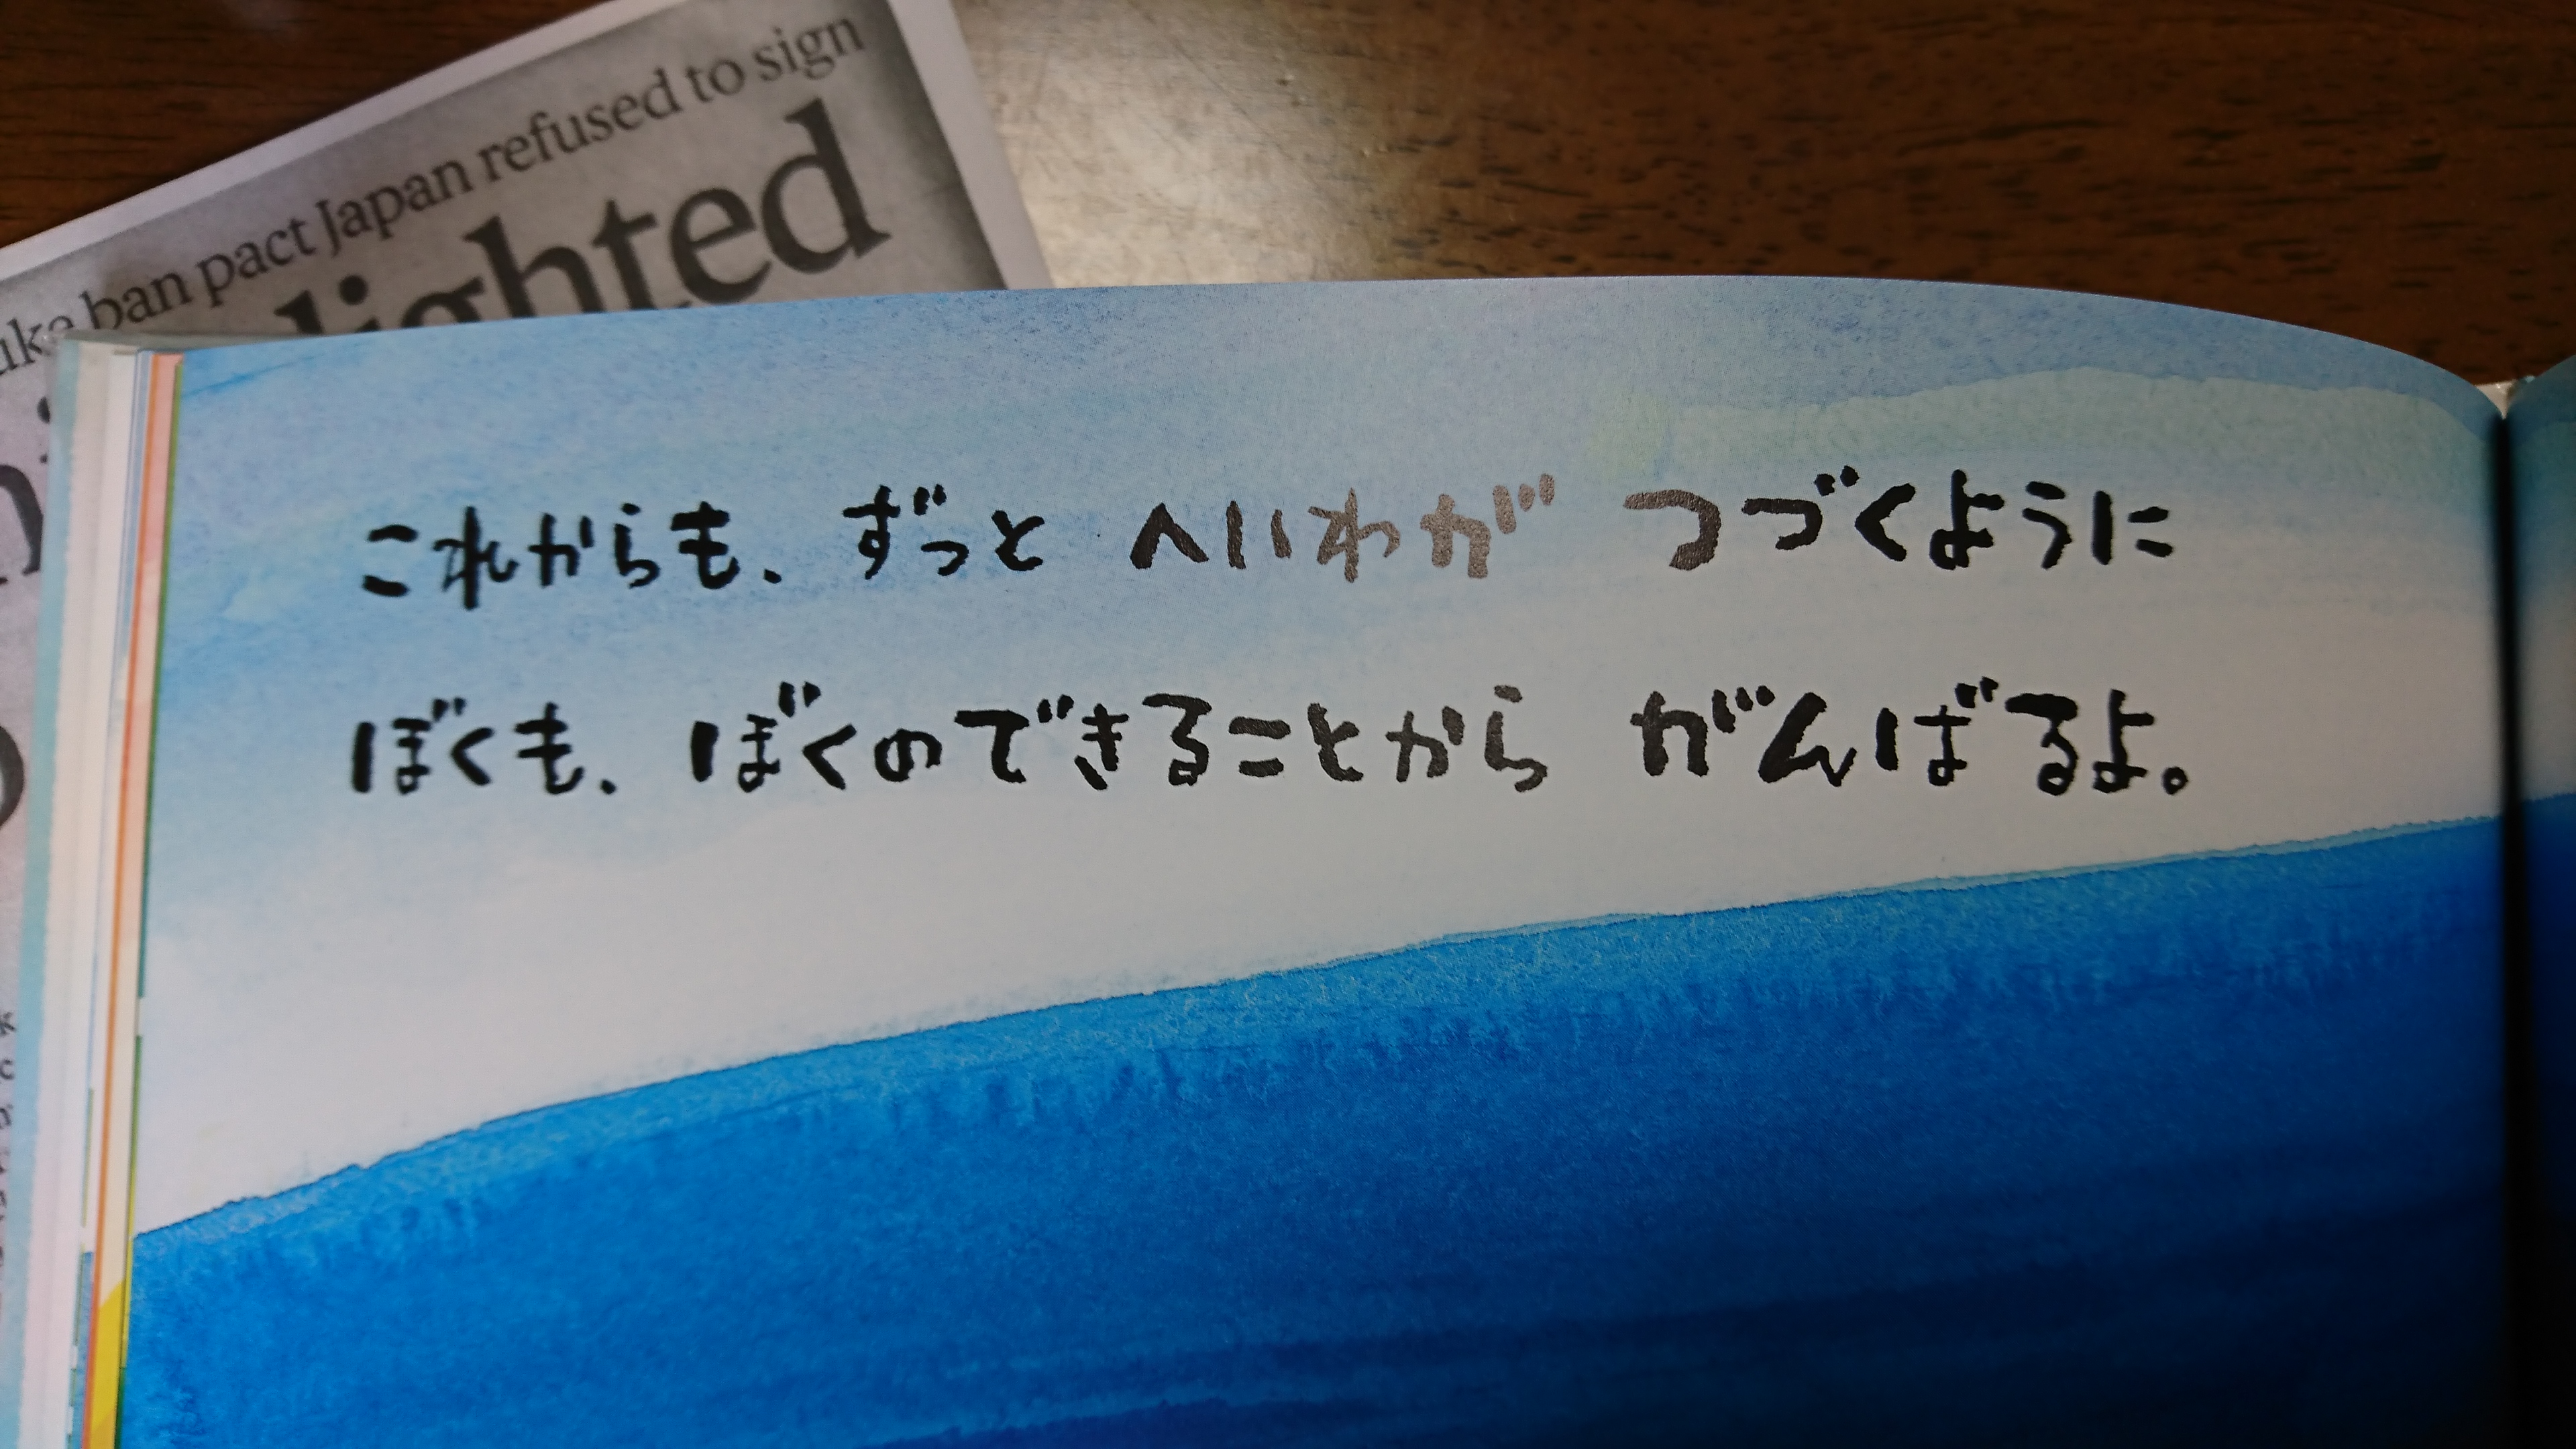 ban pact Japan refused to sign
lighted
これからも、ずっと へいわが つづくように
ぼくも、ぼくのできることから がんばるよ。